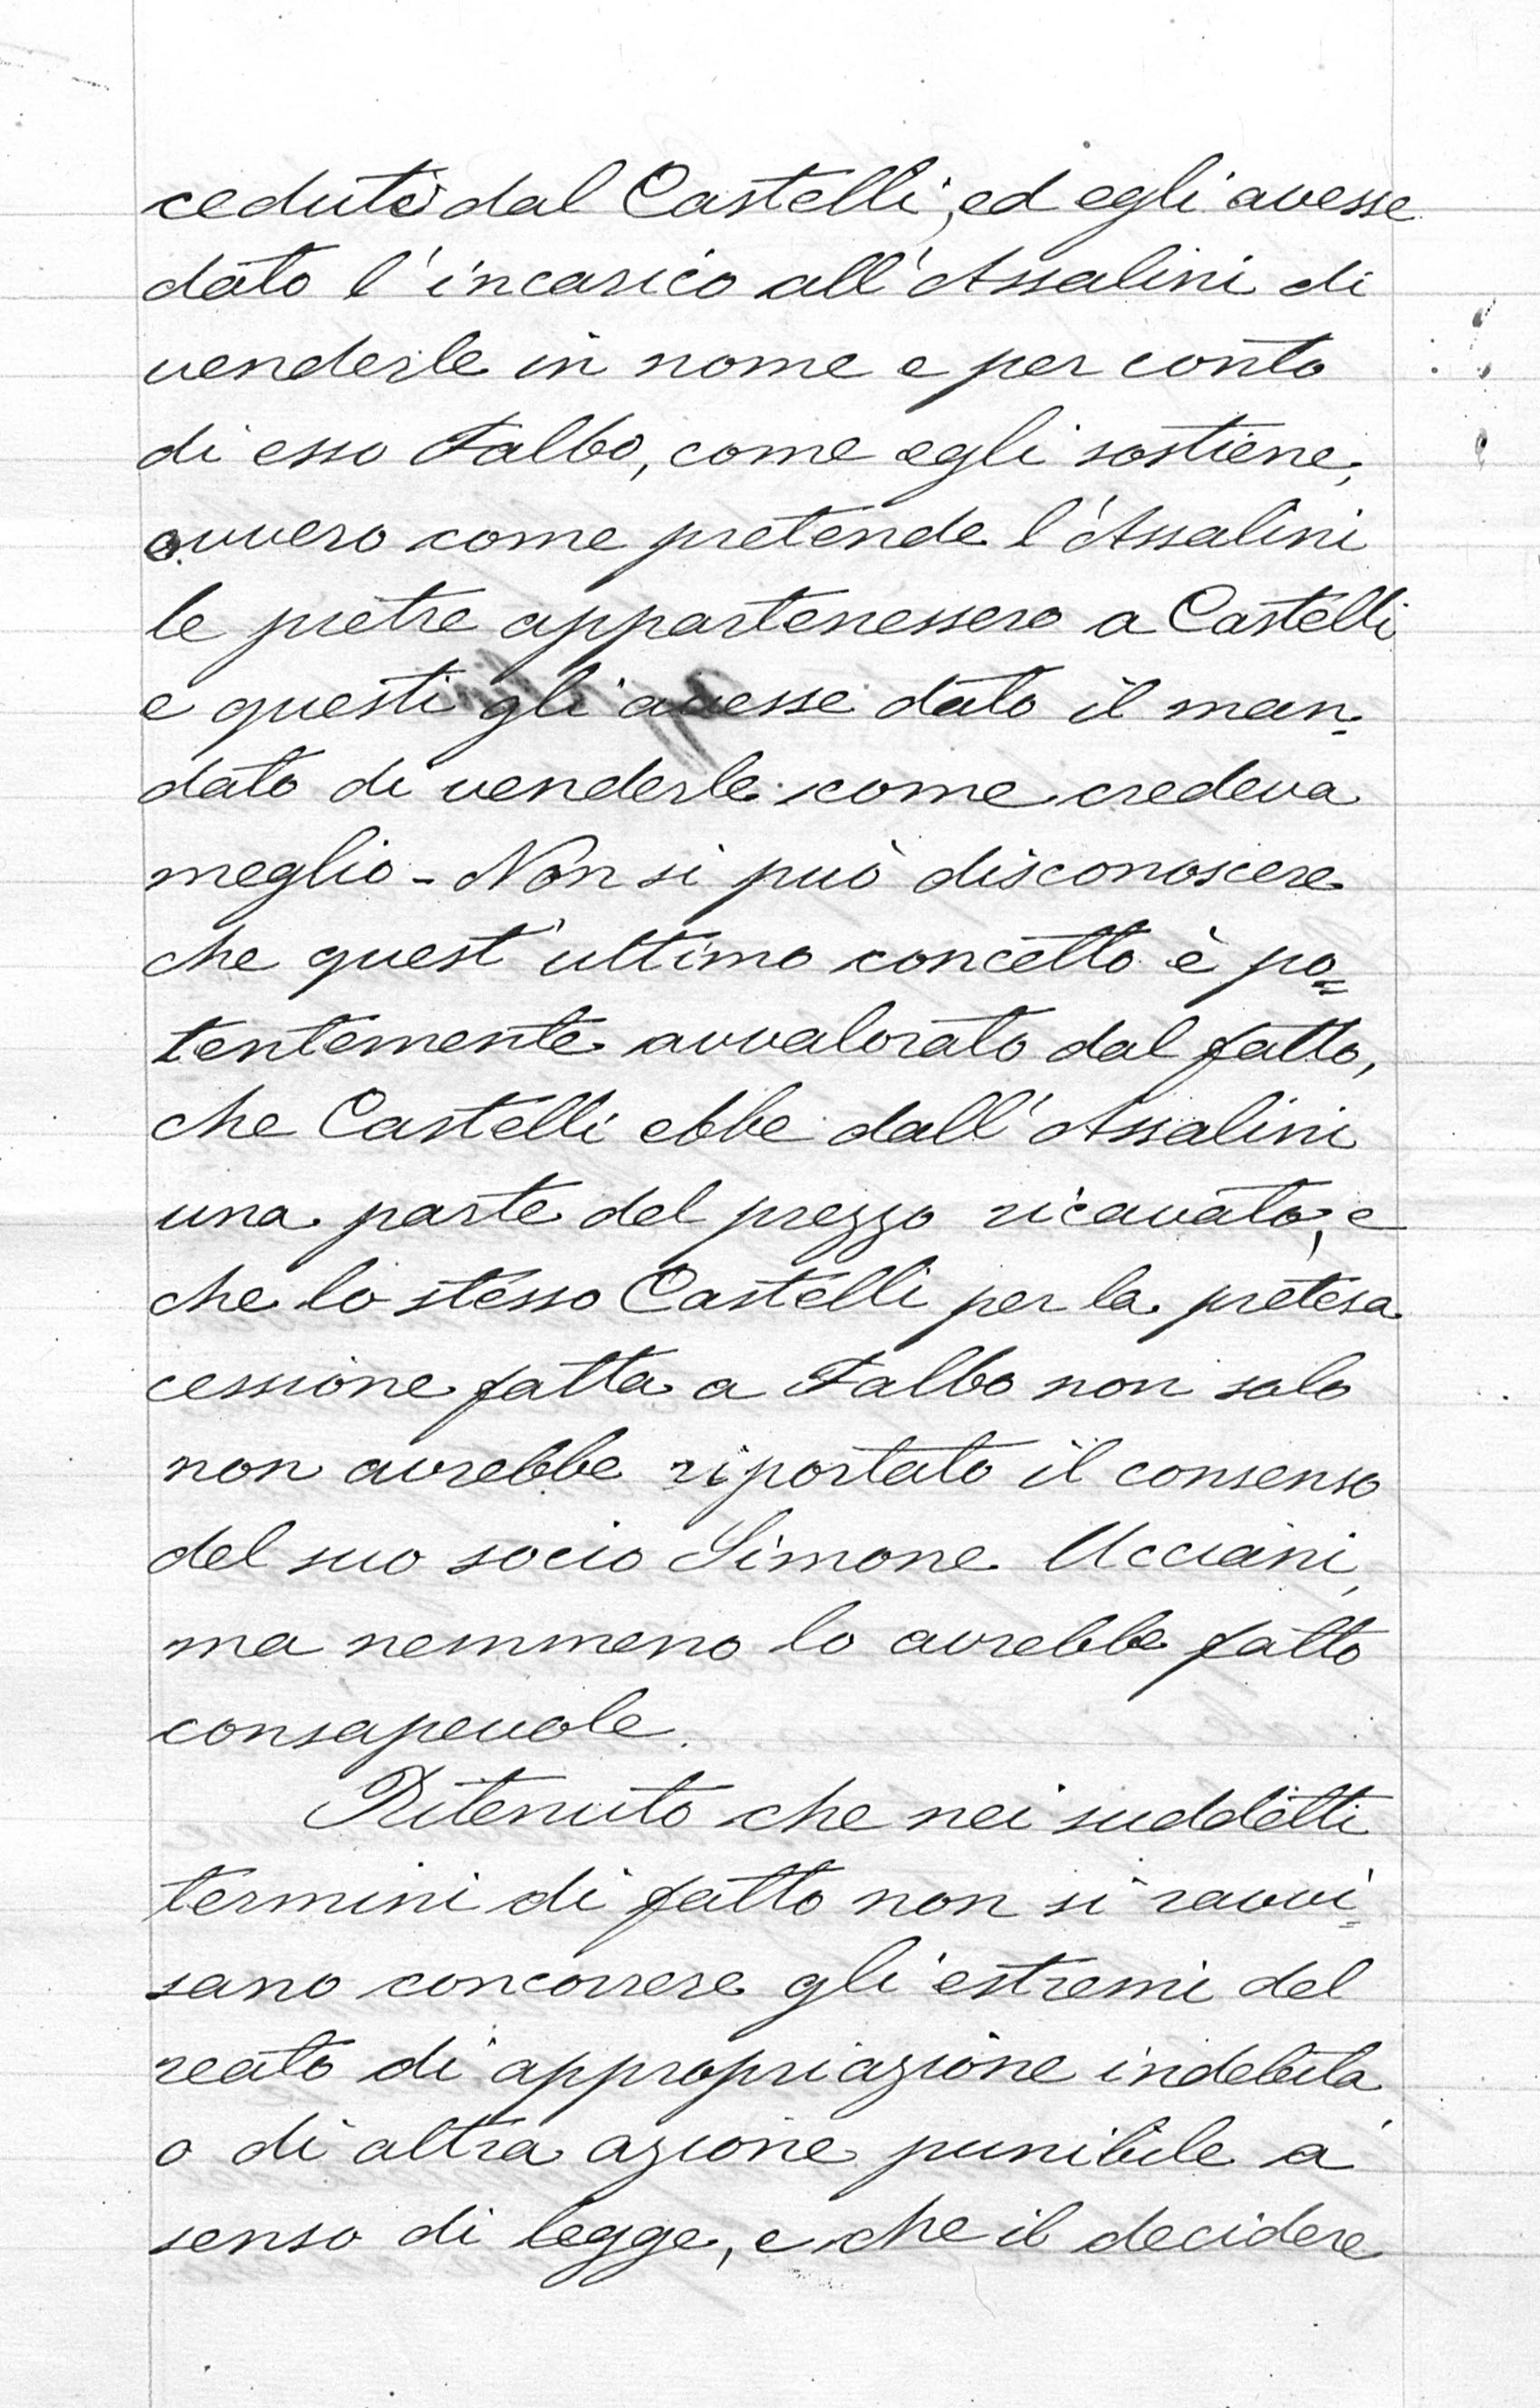 cedute dal Castelli, ed egli avesse
dato l'incarico all'Assalini di
venderle in nome e per conto
di esso Falbo, come egli sostiene;
ovvero come pretende l'Assalini
le pietre appartenessero a Castelli
e questi gli avesse dato il man-
dato di venderle come credeva
meglio - Non si può disconoscere
che quest'ultimo concetto è po=
tentemente avvalorato dal fatto,
che Castelli ebbe dall'Assalini
una parte del prezzo ricavato, e
che lo stesso Castelli per la pretesa
cessione fatta a Falbo non solo
non avrebbe riportato il consenso
del suo socio Simone Ucciani,
ma nemmeno lo avrebbe fatto
consapevole.
Ritenuto che nei suddetti
termini di fatto non si ravvi=
sano concorrere gli estremi del
reato di appropriazione indebita
o di altra azione punibile a'
senso di legge, e che il decidere